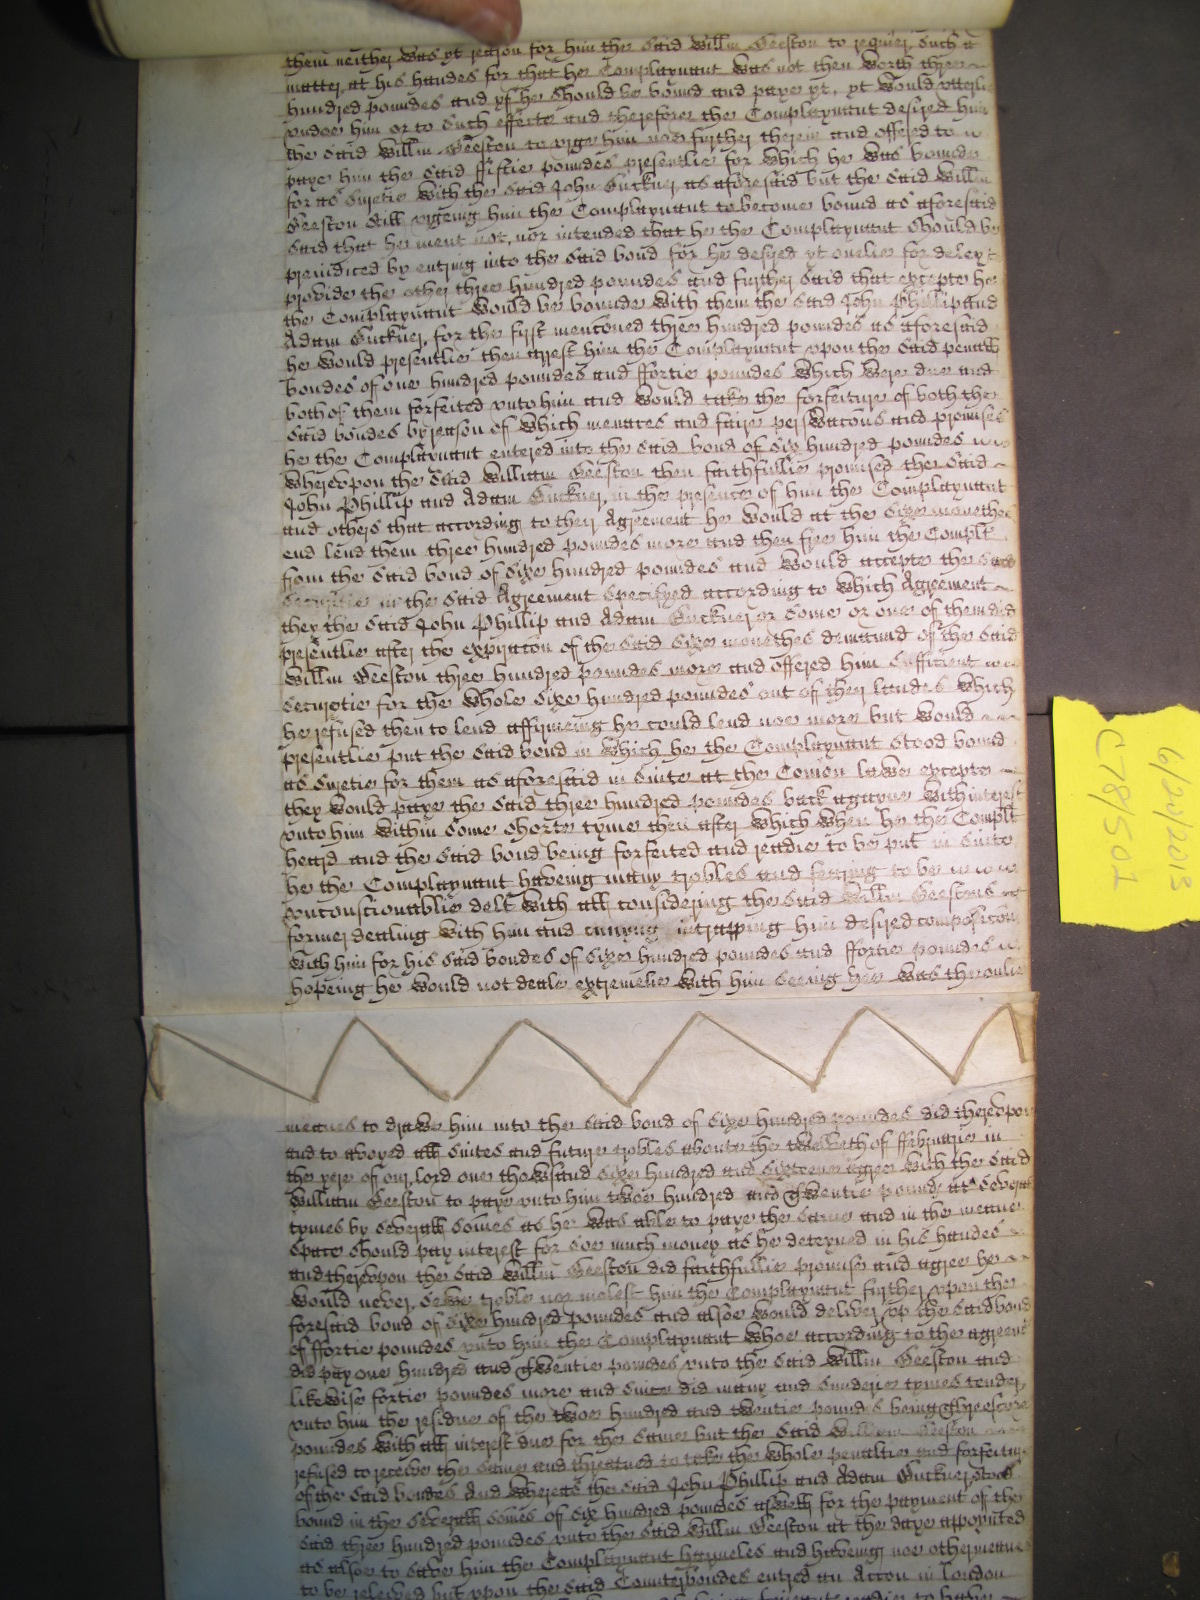 them neither was yt reason for him the said Willm Beeston to requier such a
matter at his handes for that he Complaynant was not then worth three
hundred poundes and yf he should be bound and paye yt, yt would utterlie
undoe him or to such effecte and therefore the Complaynant desired him
the said Willm Beeston to urge him noe further therein and offered to
paye him the said fiftie poundes presentlie for which he was bounde
for as suretie with the said John Buckner as aforesaid but the said Willm
Beeston still urgeing him the Complaynant to become bound as aforesaid
said that he ment not, nor intended that he the Complaynant should be
prejudiced by entring into the said bond for he desyred yt onelie for delay to
provide the other three hundred poundes and further said that excepte he
the Complaynant would be bounde with them the said John Phillip and
Adam Buckner, for the first mentioned three hundred poundes as aforesaid
he would presentlie then arrest him the Complaynant upon the said penall
bondes of one hundred poundes and ffortie poundes which were due and
both of them forfeited unto him and would take the forfeiture of both the
said bondes by reason of which menaces and faire perswacons and promises
he the Complaynant entered into the said bond of six hundred poundes
whereupon the said William Beeston then faithfullie promised the said
John Phillip and Adam Buckner, in the presence of him the Complaynant
and others that according to their Agreement he would at the sixe monethes
end lend them three hundred poundes more and then free him the Complt
from the said bond of sixe hundred poundes and would accepte the said
securitie in the said Agreement specifyed according to which Agreement
they the said John Phillip and Adam Buckner or some or one of them did
presentlie after the expiracon of the said sixe monethes demaund of the said
Willm Beeston three hundred poundes more and offered him sufficient
securytie for the whole sixe hundred poundes out of their landes which
he refused then to lend affirmeing he could lend noe more but would
presentlie put the said bond in which he the Complaynant stood bound
as suretie for them as aforesaid in suite at the Comon lawe excepte
they would paye the said three hundred poundes back agayne with interest
unto him within some shorte tyme then after which when he the Complt
heard and the said bond being forfeited and readie to be put in suite
he the Complaynant haveing many trobles and fearing to be
unconscionablie delt with all considering the said Willm Beestons
former dealing with him and cunyng intrapping him desired composicon
with him for his said bondes of sixe hundred poundes and ffortie poundes
hopeing he would not deale extremelie with him seeing hee was the onlie
meanes to drawe him into the said bond of sixe hundred poundes did thereupon
and to avoyed all suites and future trobles aboute the twelveth of ffebruarie in
the yere of our Lord one thowsand sixe hundred and sixteene agree with the said
William Beeston to paye unto him twoe hundred and twentie pounds at severall
tymes by severall somes as he was able to paye the same and in the meane
space should pay interest for soe much money as he deteyned in his handes
and thereupon the said Willm Beeston did faithfullie promise and agree he
would never, sewe troble nor molest him the Complaynant further, upon the
foresaid bond of sixe hundred poundes and alsoe would deliver up the said bond
of ffortie poundes unto him the Complaynant whoe according to the agreemt
did pay one hundred and twentie poundes unto the said Willm Beeston and
likewise fortie poundes more and since did many and sunderie tymes tender,
unto him the residue of the twoe hundred and twentie pounds being threescore
poundes with all interest due for the same but the said William Beeston
refused to receive the same and threatned to take the whole penaltie and forfeiture
of the said bondes And whereas the said John Phillip and Adam Buckner, stood
bound in the severall somes of six hundred poundes aswell for the payment of the
said three hundred poundes unto the said Willm Beeston at the daye appoynted
as alsoe to save him the Complaynant harmeles and haveing noe other meanes
to be releived but upon the said Counterbondes entred an Accon in London
6/20/2013
C78/501